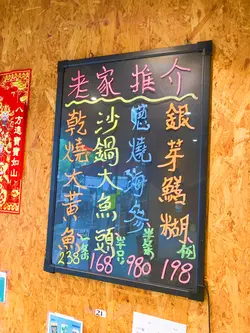 老家推介
銀芽鱔糊 例 198
蔥燒海參 半斤 980
沙鍋大魚頭 半只 168
乾燒大黃魚 一条 238
八方進寶寶如山
21